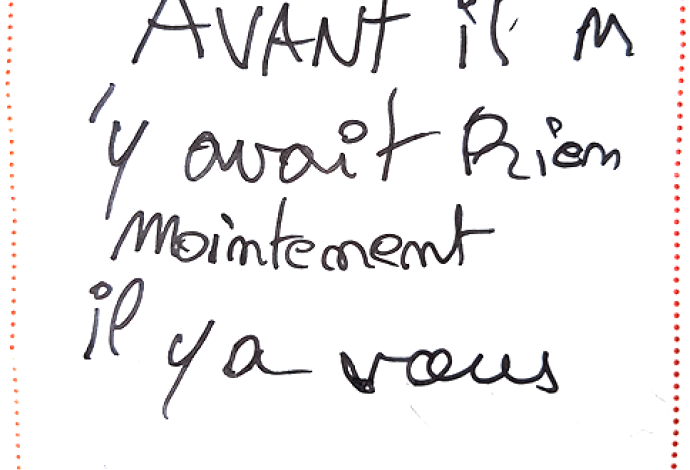 AVANT il n
'y avait Rien
maintenant
il y a vous